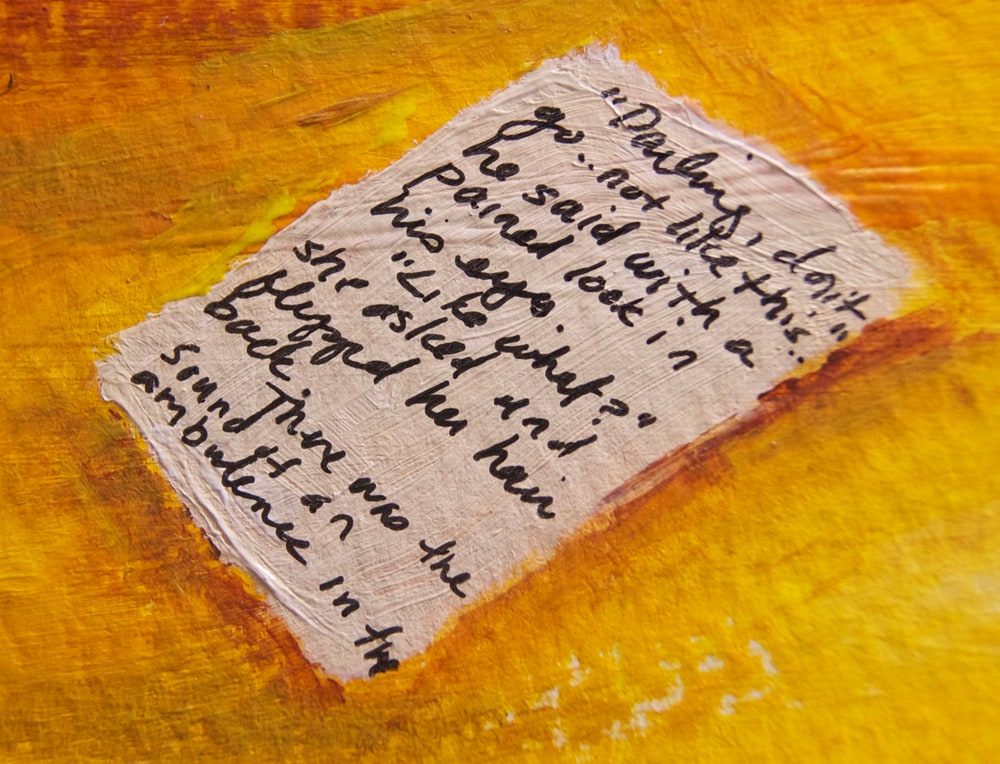 "Darling, don't
go.. not like this.."
he said with a
pained look in
his eyes.
"Like what?"
she asked and
flipped her hair
back. There was the
sound of an
ambulence in the